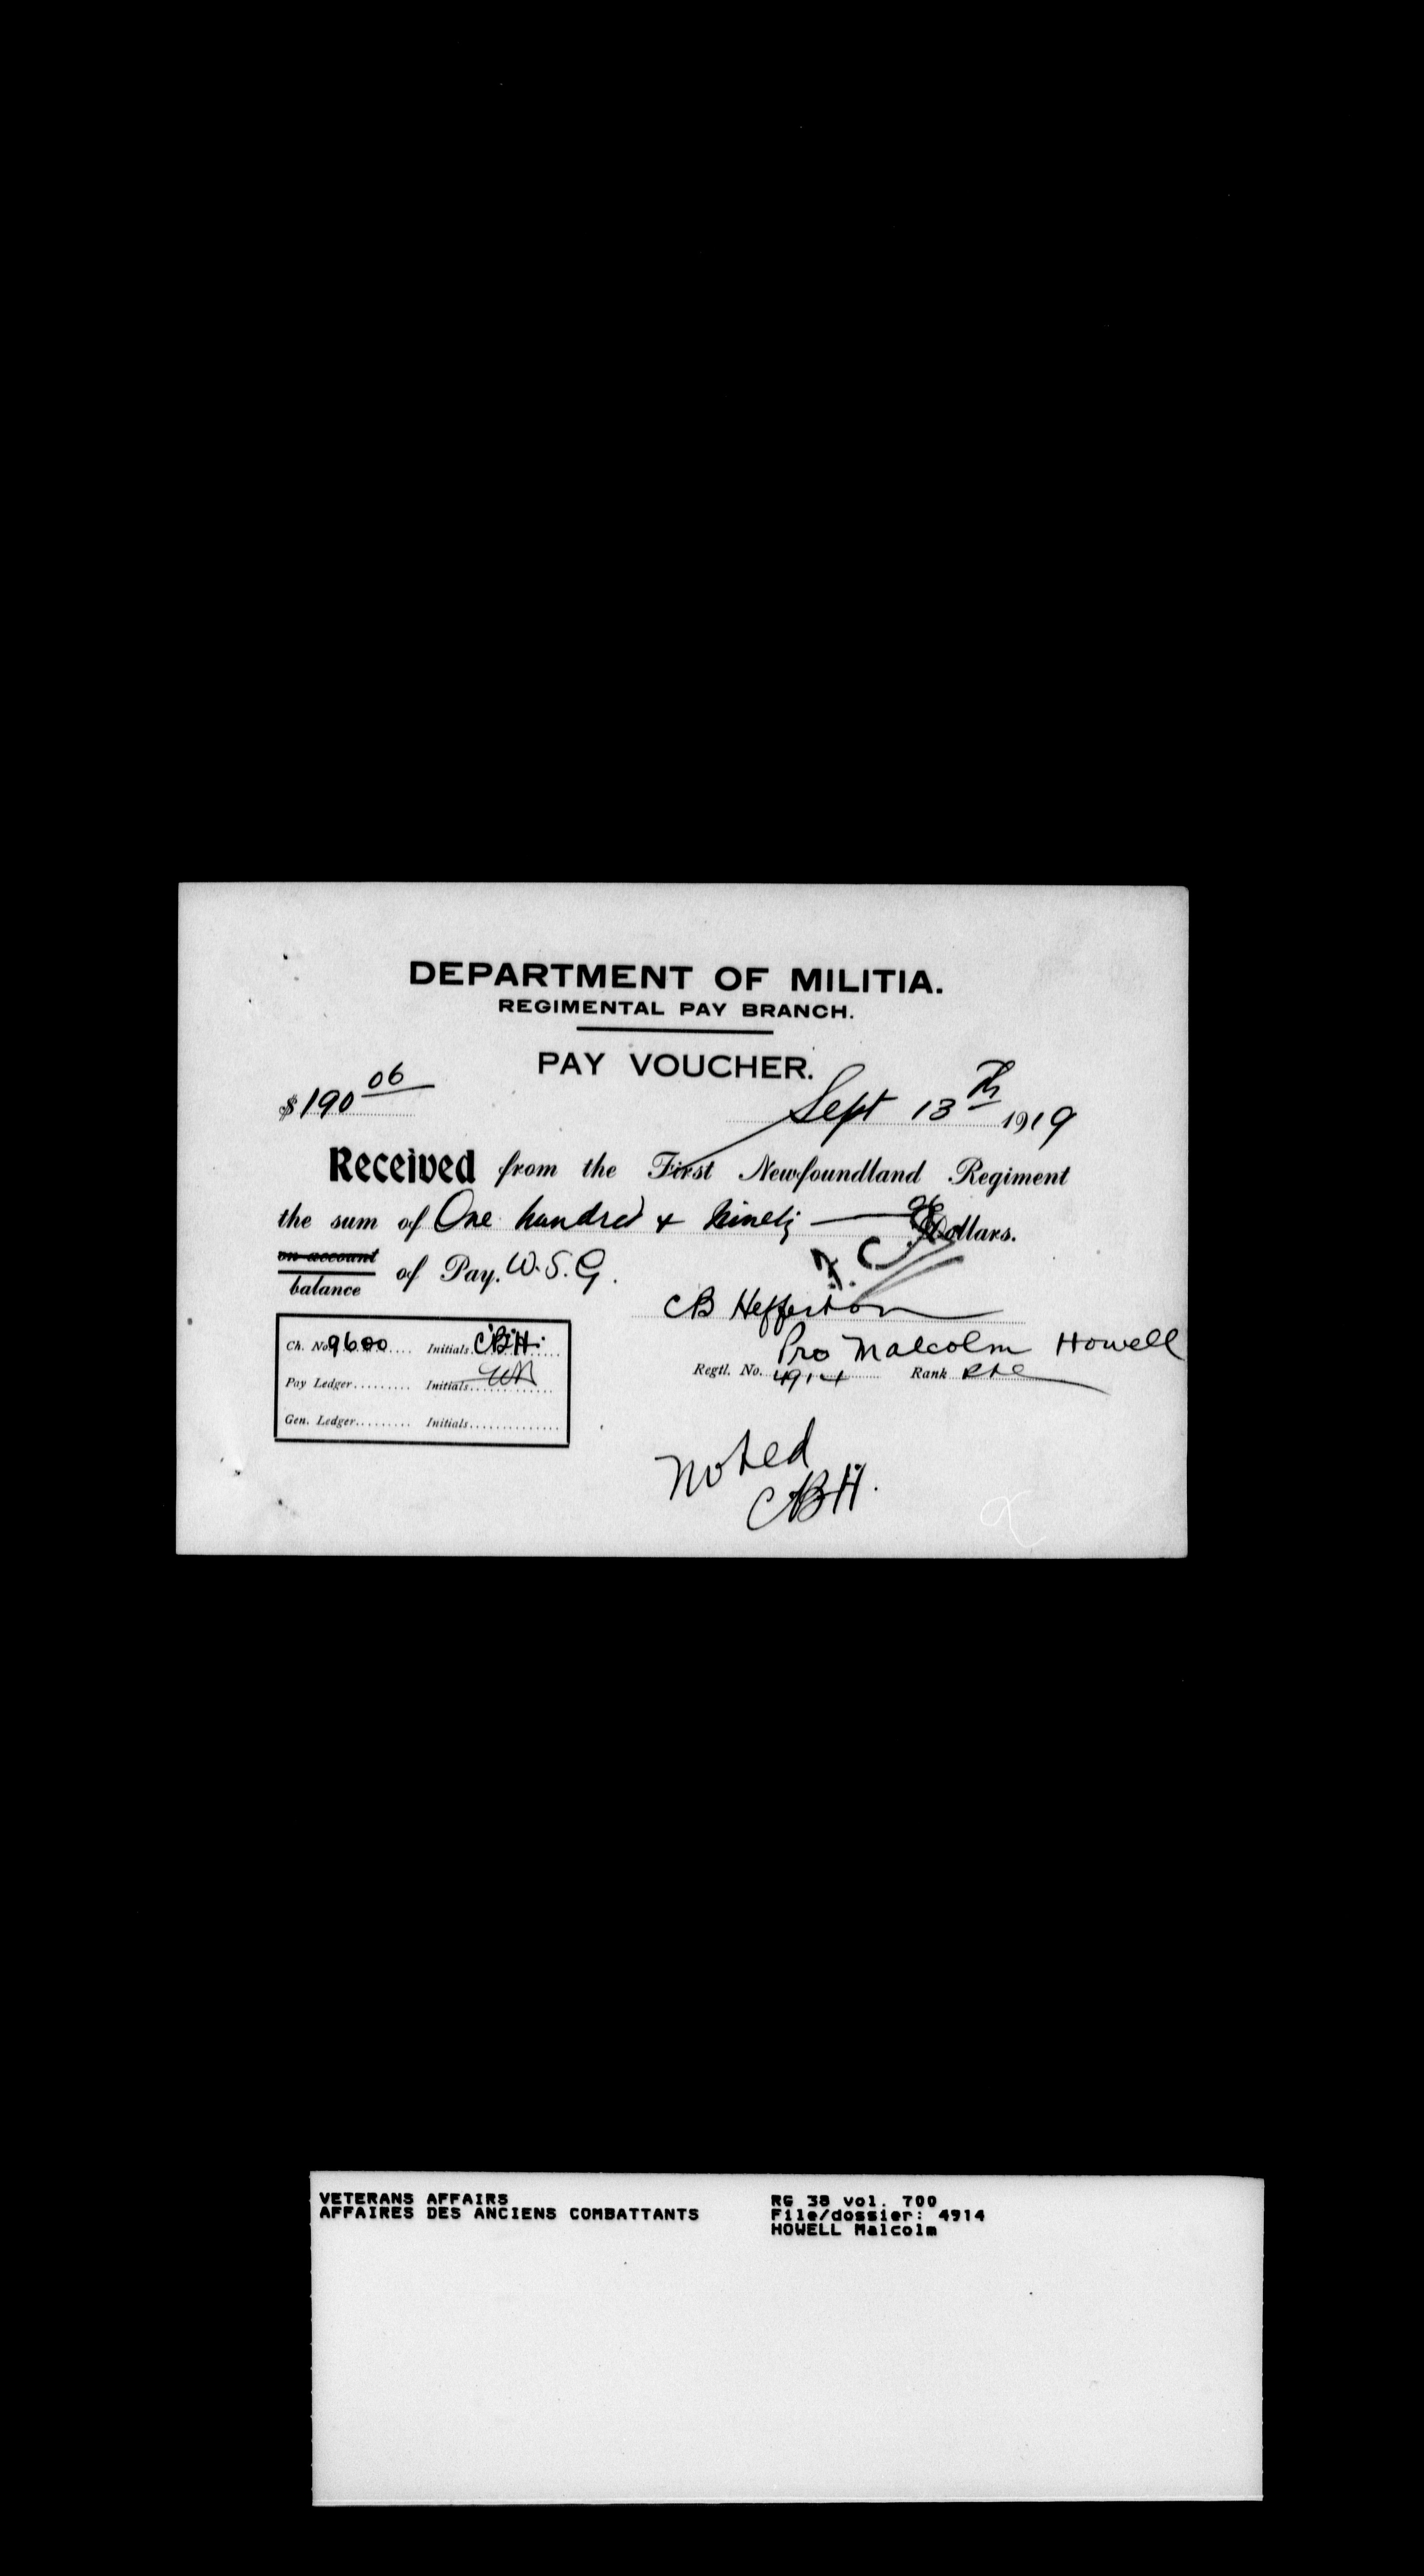 DEPARTMENT OF MILITIA.
REGIMENTAL PAY BRANCH.
PAY VOUCHER.
$190 06
Sept 13th 1919
Received from the First Newfoundland Regiment
the sum of One hundred & Ninety 06 Dollars.
on account
balance
of Pay. W.S.G.
CB Hefferton
Pro Malcolm Howell
Regtl. No. 4914 Rank Pte
Ch. No 9600 Initials CBH.
Pay Ledger Initials
Gen. Ledger Initials
Noted
CBH.
VETERANS AFFAIRS
AFFAIRES DES ANCIENS COMBATTANTS
RG 38 vol. 700
File/dossier: 4914
HOWELL Malcolm